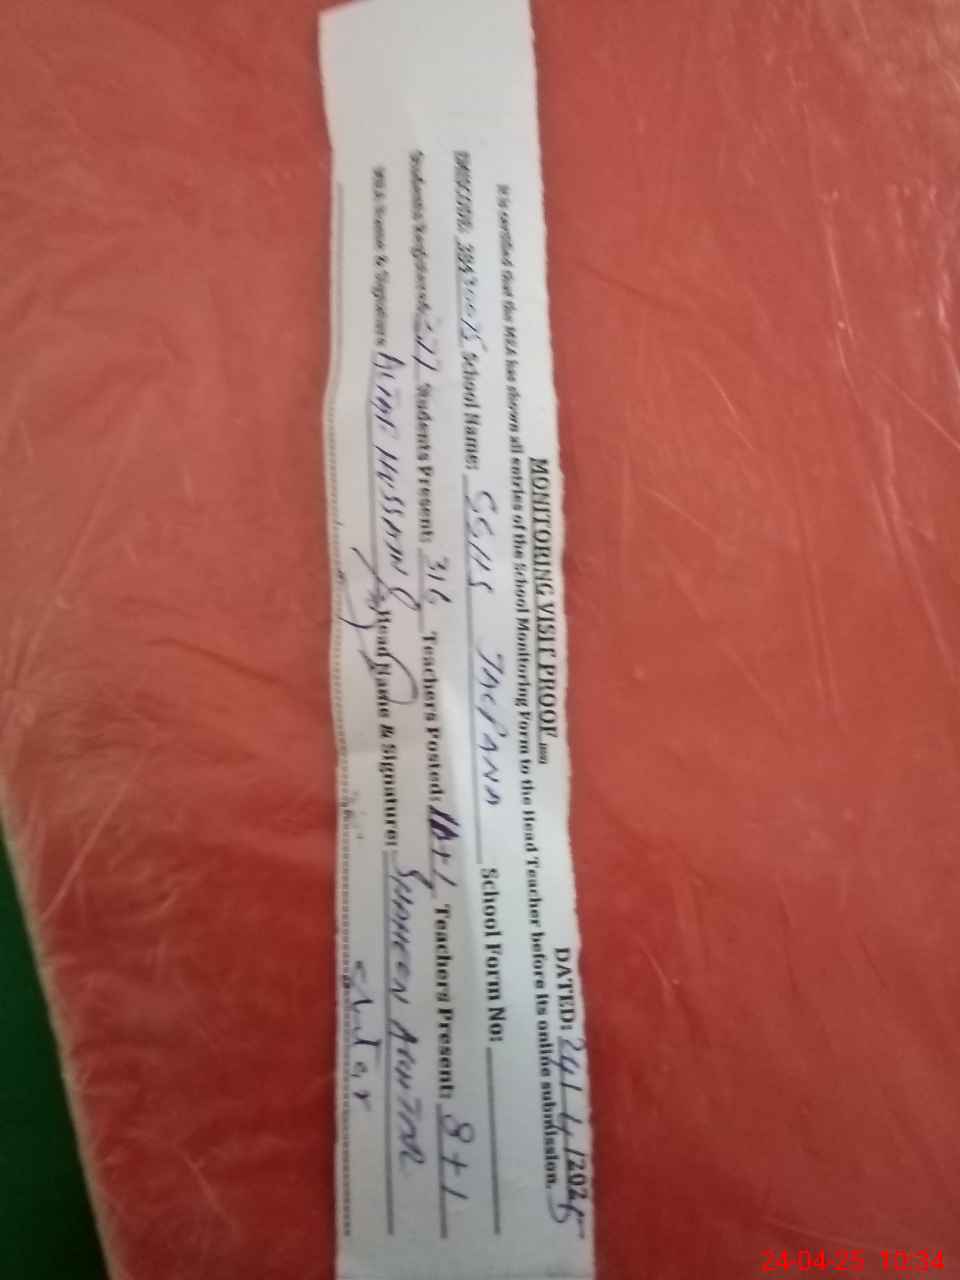 MONITORING VISIT PROOF DATED: 24/4/2025
It is certified that the MEA has shown all entries of the School Monitoring Form to the Head Teacher before its online submission.
School Name: GGHS School Form No:
Students Registered: Students Present: 316 Teachers Posted: Teachers Present: 8+1
MEA Name & Signature: ALTAF HUSSAIN Head Name & Signature: SHAHEEN AKHTAR
24-04-25 10:34